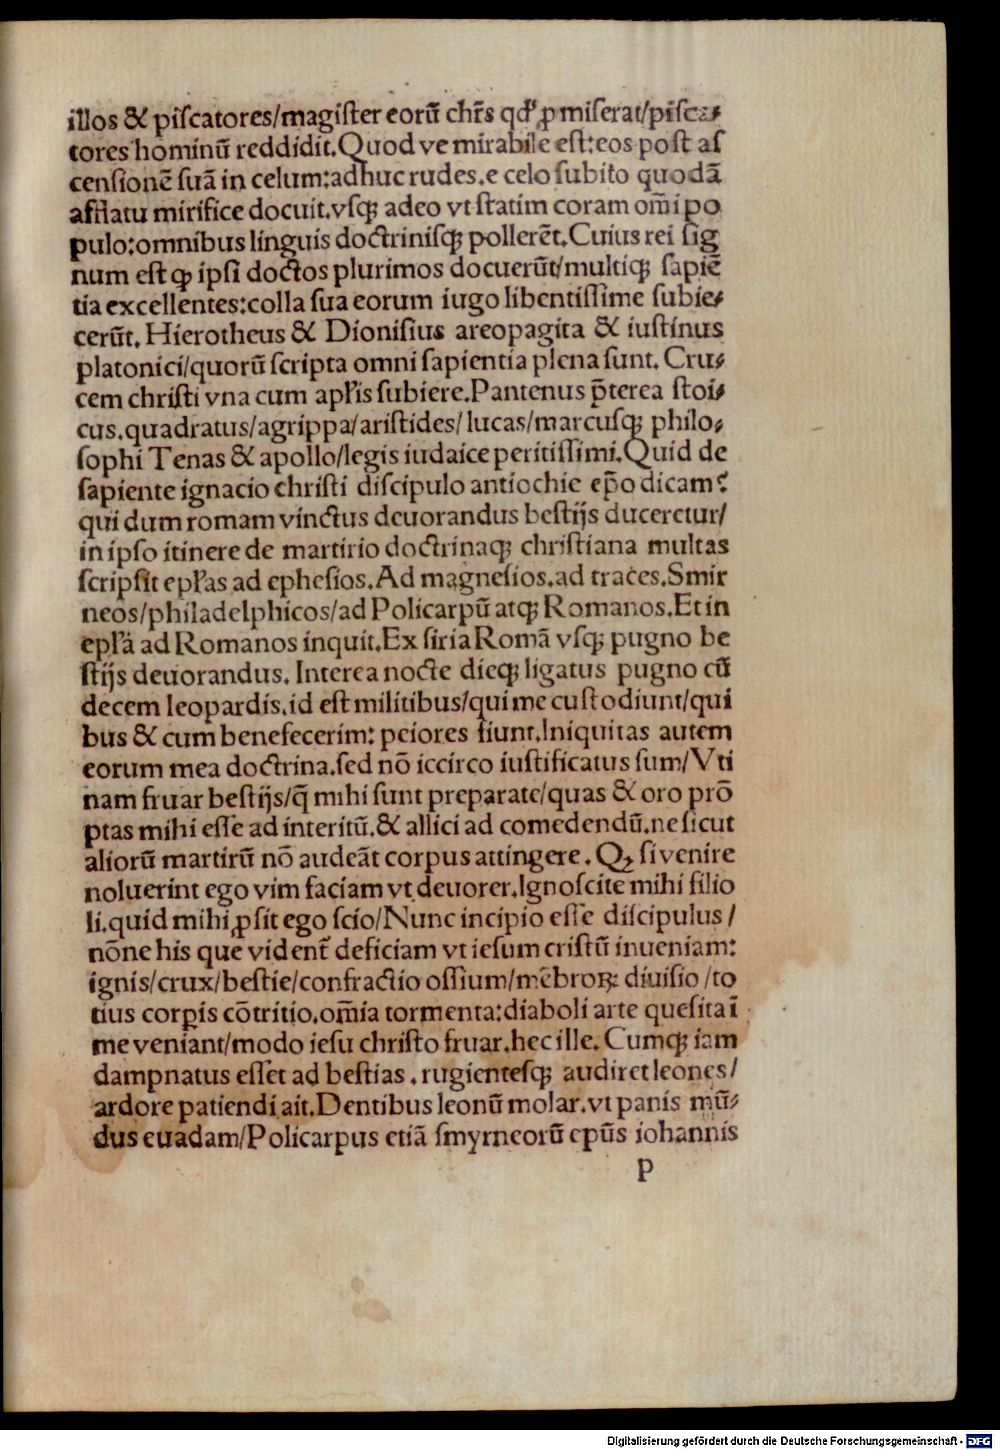 illos & piſcatores/magiſter eorū chr̄s qd' ꝓmiſerat/piſca⸗
tores hominū reddidit.Quod ve mirabile eſt:eos poſt aſ
cenſionē ſuā in celum:adhuc rudes.e celo ſubito quodā
afflatu mirifice docuit.vſqꝫ adeo vt ſtatim coram om̄i po
pulo:omnibus linguis doctriniſqꝫ pollerēt.Cuius rei ſig
num eſt ꝙ ipſi doctos plurimos docuerūt/multiqꝫ ſapiē
tia excellentes:colla ſua eorum iugo libentiſſime ſubie⸗
cerūt. Hierotheus & Dioniſius areopagita & iuſtinus
platonici/quorū ſcripta omni ſapientia plena ſunt. Cru⸗
cem chriſti vna cum apl'is ſubiere.Pantenus p̄terea ſtoi⸗
cus.quadratus/agrippa/ariſtides/lucas/marcuſqꝫ philo⸗
ſophi Tenas & apollo/legis iudaice peritiſſimi.Quid de
ſapiente ignacio chriſti diſcipulo antiochie ep̄o dicam?
qui dum romam vinctus deuorandus beſtijs duceretur/
in ipſo itinere de martirio doctrinaqꝫ chriſtiana multas
ſcripſit epl'as ad epheſios.Ad magneſios.ad traces.Smir
neos/philadelphicos/ad Policarpū atqꝫ Romanos.Et in
epl'a ad Romanos inquit.Ex ſiria Romā vſqꝫ pugno be
ſtijs deuorandus. Interea nocte dieqꝫ ligatus pugno cū
decem leopardis.id eſt militibus/qui me cuſtodiunt/qui
bus & cum benefecerim: peiores fiunt.Iniquitas autem
eorum mea doctrina.ſed nō iccirco iuſtificatus ſum/Vti
nam fruar beſtijs/q̄ mihi ſunt preparate/quas & oro prō
ptas mihi eſſe ad interitū.& allici ad comedendū.ne ſicut
aliorū martirū nō audeāt corpus attingere. Qꝫ ſi venire
noluerint ego vim faciam vt deuorer.Ignoſcite mihi filio
li.quid mihi ꝓſit ego ſcio/Nunc incipio eſſe diſcipulus/
nōne his que vident' deficiam vt ieſum criſtū inueniam:
ignis/crux/beſtie/confractio oſſium/mēbroꝝ diuiſio/to
tius corꝑis cōtritio.om̄ia tormenta:diaboli arte queſita ī
me veniant/modo ieſu chriſto fruar.hec ille. Cumqꝫ iam
dampnatus eſſet ad beſtias.rugienteſqꝫ audiret leones/
ardore patiendi ait.Dentibus leonū molar.vt panis mū⸗
dus euadam/Policarpus etiā ſmyrneorū ep̄us iohannis
p
Digitalisierung gefördert durch die Deutsche Forschungsgemeinschaft - DFG